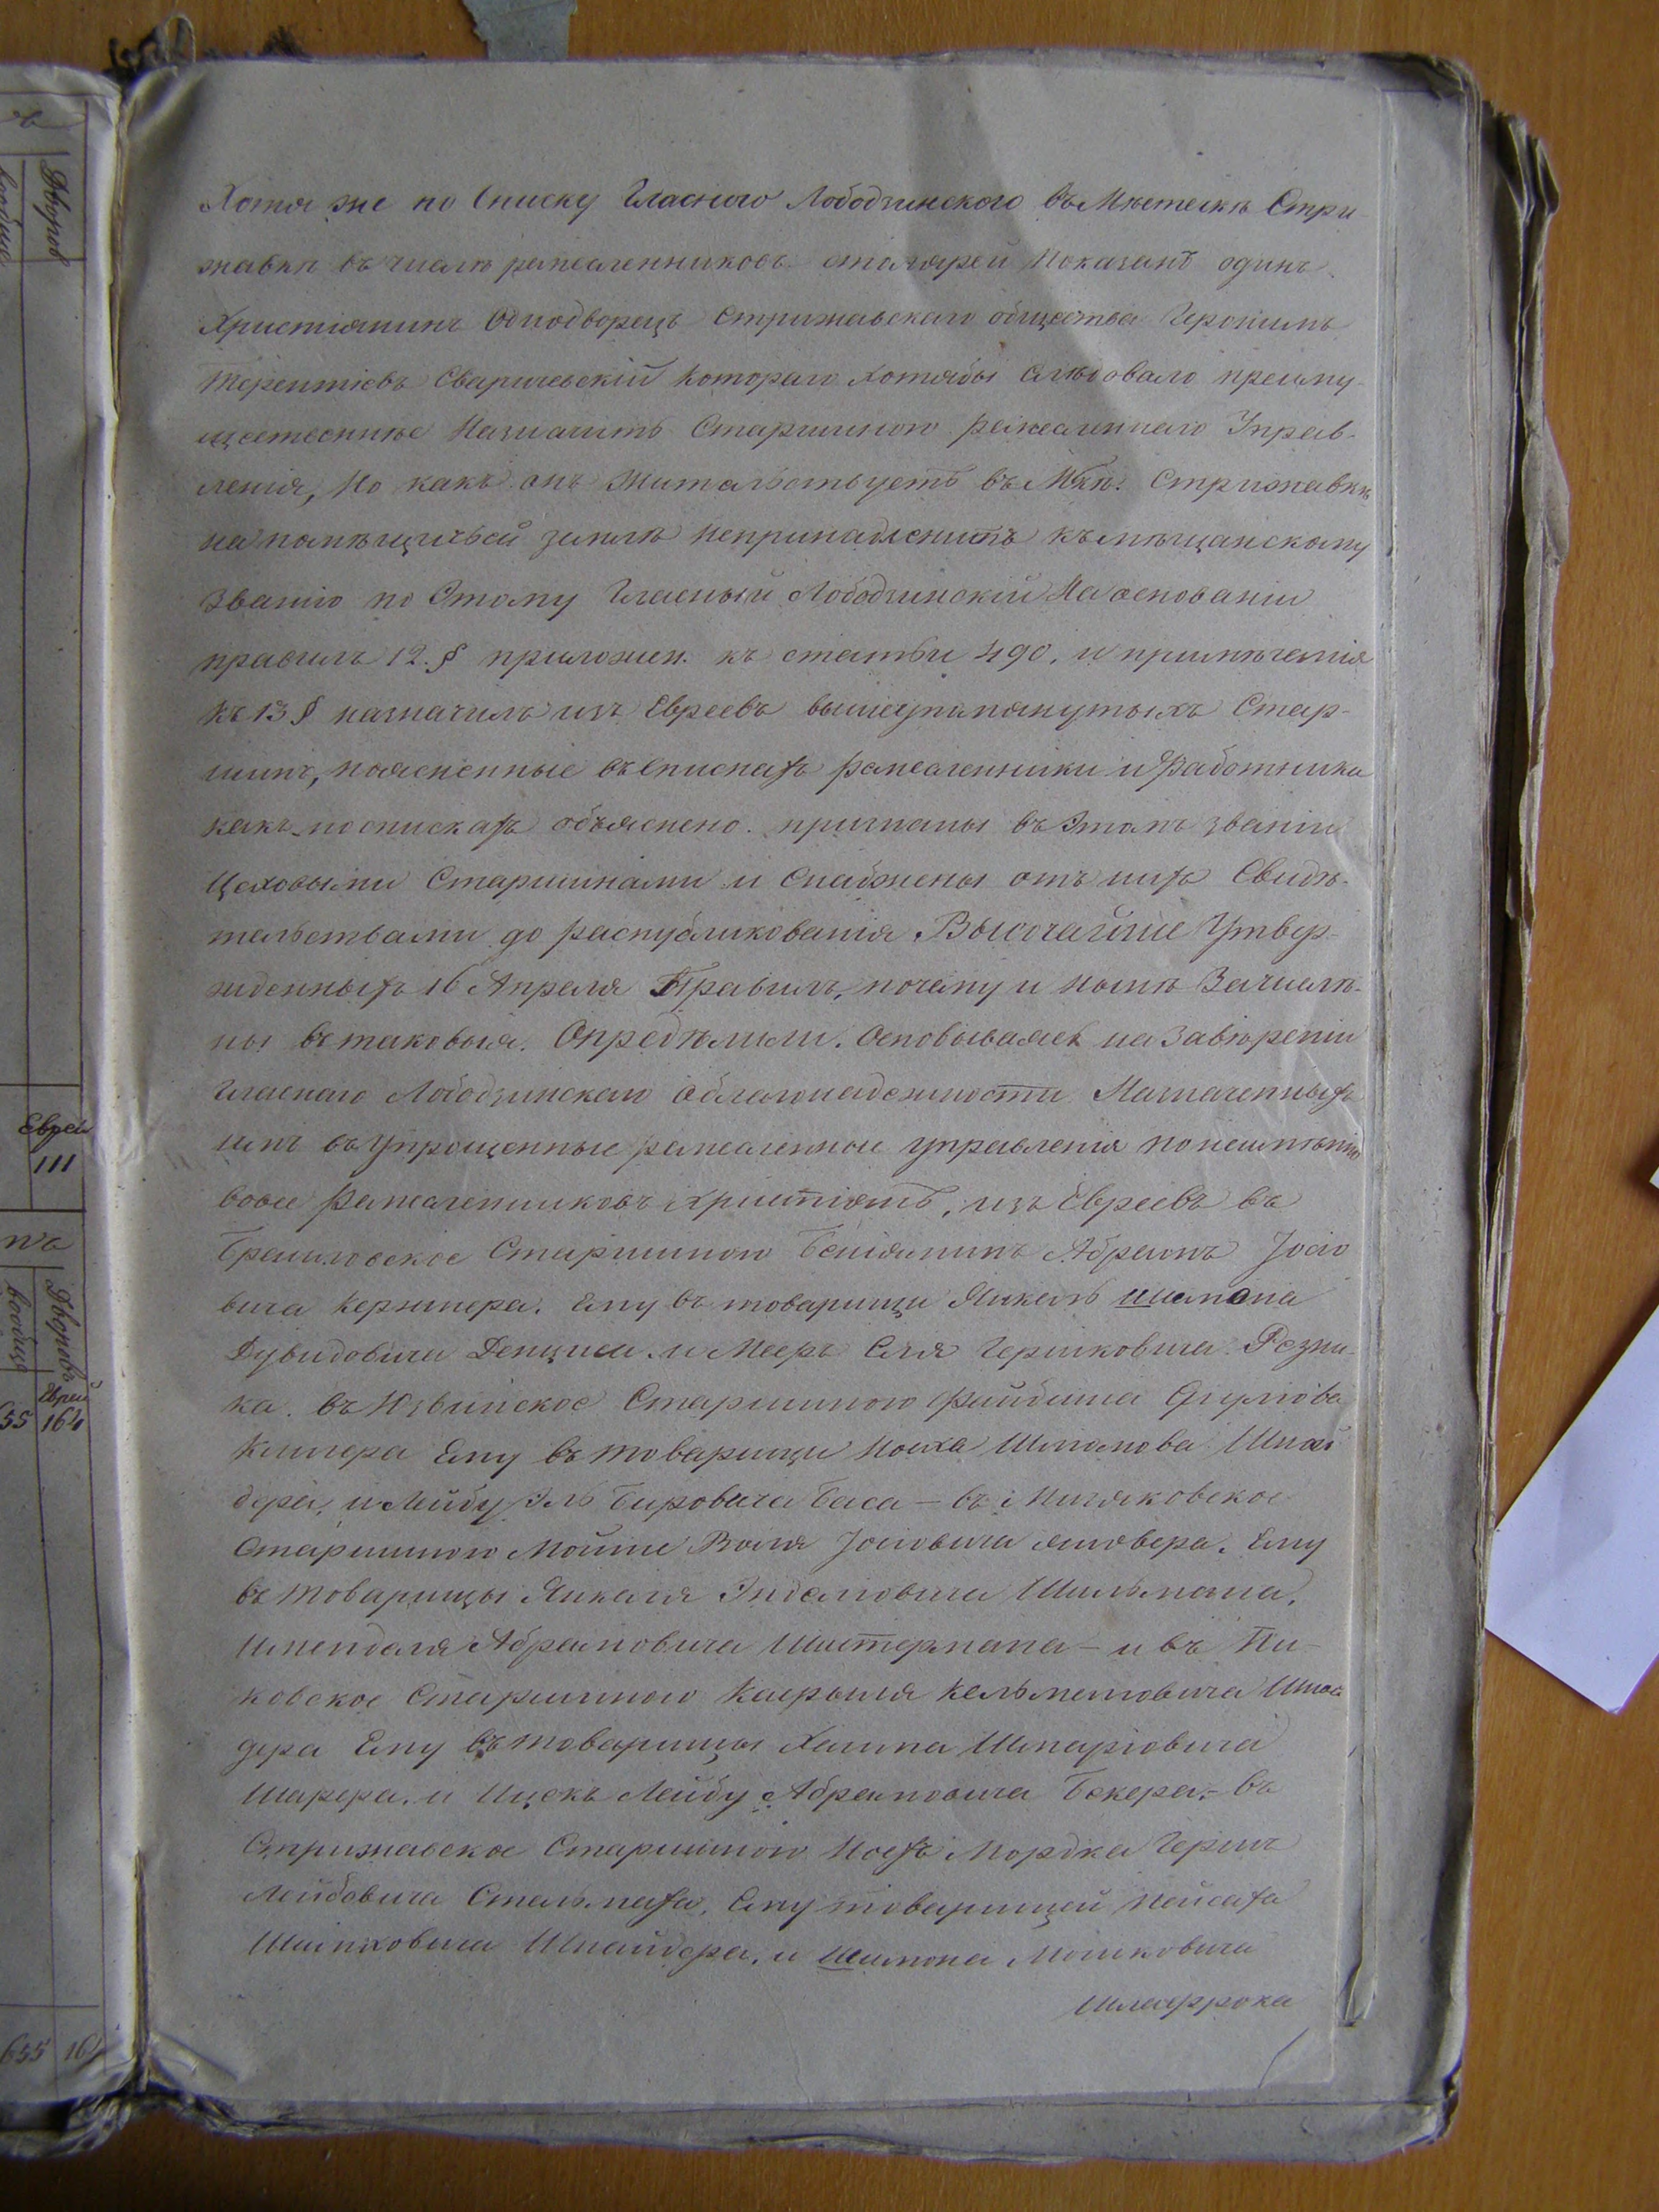 Хотя же по Списку Гласного Лободзинского въ Мѣстечкѣ Стри-
жавкѣ въ числѣ ремесленниковъ столярей показанъ одинъ
Христіянинъ Однодворецъ Стрижавскаго общества Геронимъ
Терентіевъ Сваричевскій котораго хотябы слѣдовало преиму-
щественнѣе Назначить Старшиною ремесленнаго Управ-
ленія, Но какъ онъ жительствуетъ въ Мкѣ. Стрижавкѣ
на помѣщичьей землѣ непринадлежитъ къ мѣщанскому
Званію по Этому Гласный Лободзинскій На основаніи
правилъ 12. § приложен. къ статьи 490. и примѣчанія
къ 13 § назначилъ изъ Евреевъ вышеупомянутыхъ Стар-
шинъ, поясненные въ спискахъ ремесленники и работники
какъ по спискахъ объяснено. признаны въ Этомъ званіи
Цеховыми Старшинами и Снабжены отъ нихъ Свидѣ-
тельствами до распубликованія Высочайше Утвер-
жденныхъ 16 Апреля Правилъ, почему и нынѣ Зачисле-
ны въ таковыя. Опредѣлили. Основываясь на Завѣреніи
Гласнаго Лободзинскаго о благонадежности Назначенныхъ
имъ въ Упрощенные ремесленное управленія по неимѣнію
вовсе Ремесленниковъ христіянъ, изъ Евреевъ въ
Браиловское Старшиною Беніяминъ Абрамъ Іосіо
вича Кержнера. Ему въ товарищи Янкель Шимона
Дувидовича Денциса и Мееръ Еля Гершковича Резни-
ка. въ Юзвинское Старшиною Файбиша
Ему въ товарищи Ноиха Шмаиова Шнай
дера, и Лейбу Эль Беровича Баса — въ Мизяковское
Старшиною Мошне Воля Іосіовича Ему
въ товарищы Янкеля Эндельовича Шильмана,
Имендаля Абрамовича Шистермана — и въ Пи-
ковское Старшиною Кельмановича Шнай
дера Ему въ товарищы Хаима Шмаріовича
Шарера, и Ицекъ Лейбу Абрамовича Бекера, — въ
Стрижавское Старшиною Ноехъ Мордка Герша
Лейбовича Стельмаха, Ему товарищей Пейсаха
Шнайдера, и Шимона Мошковича
Шлафрока
Дворовъ
вообще
Еврей
111
Дворовъ
вообще
Еврей
55 164
655 164